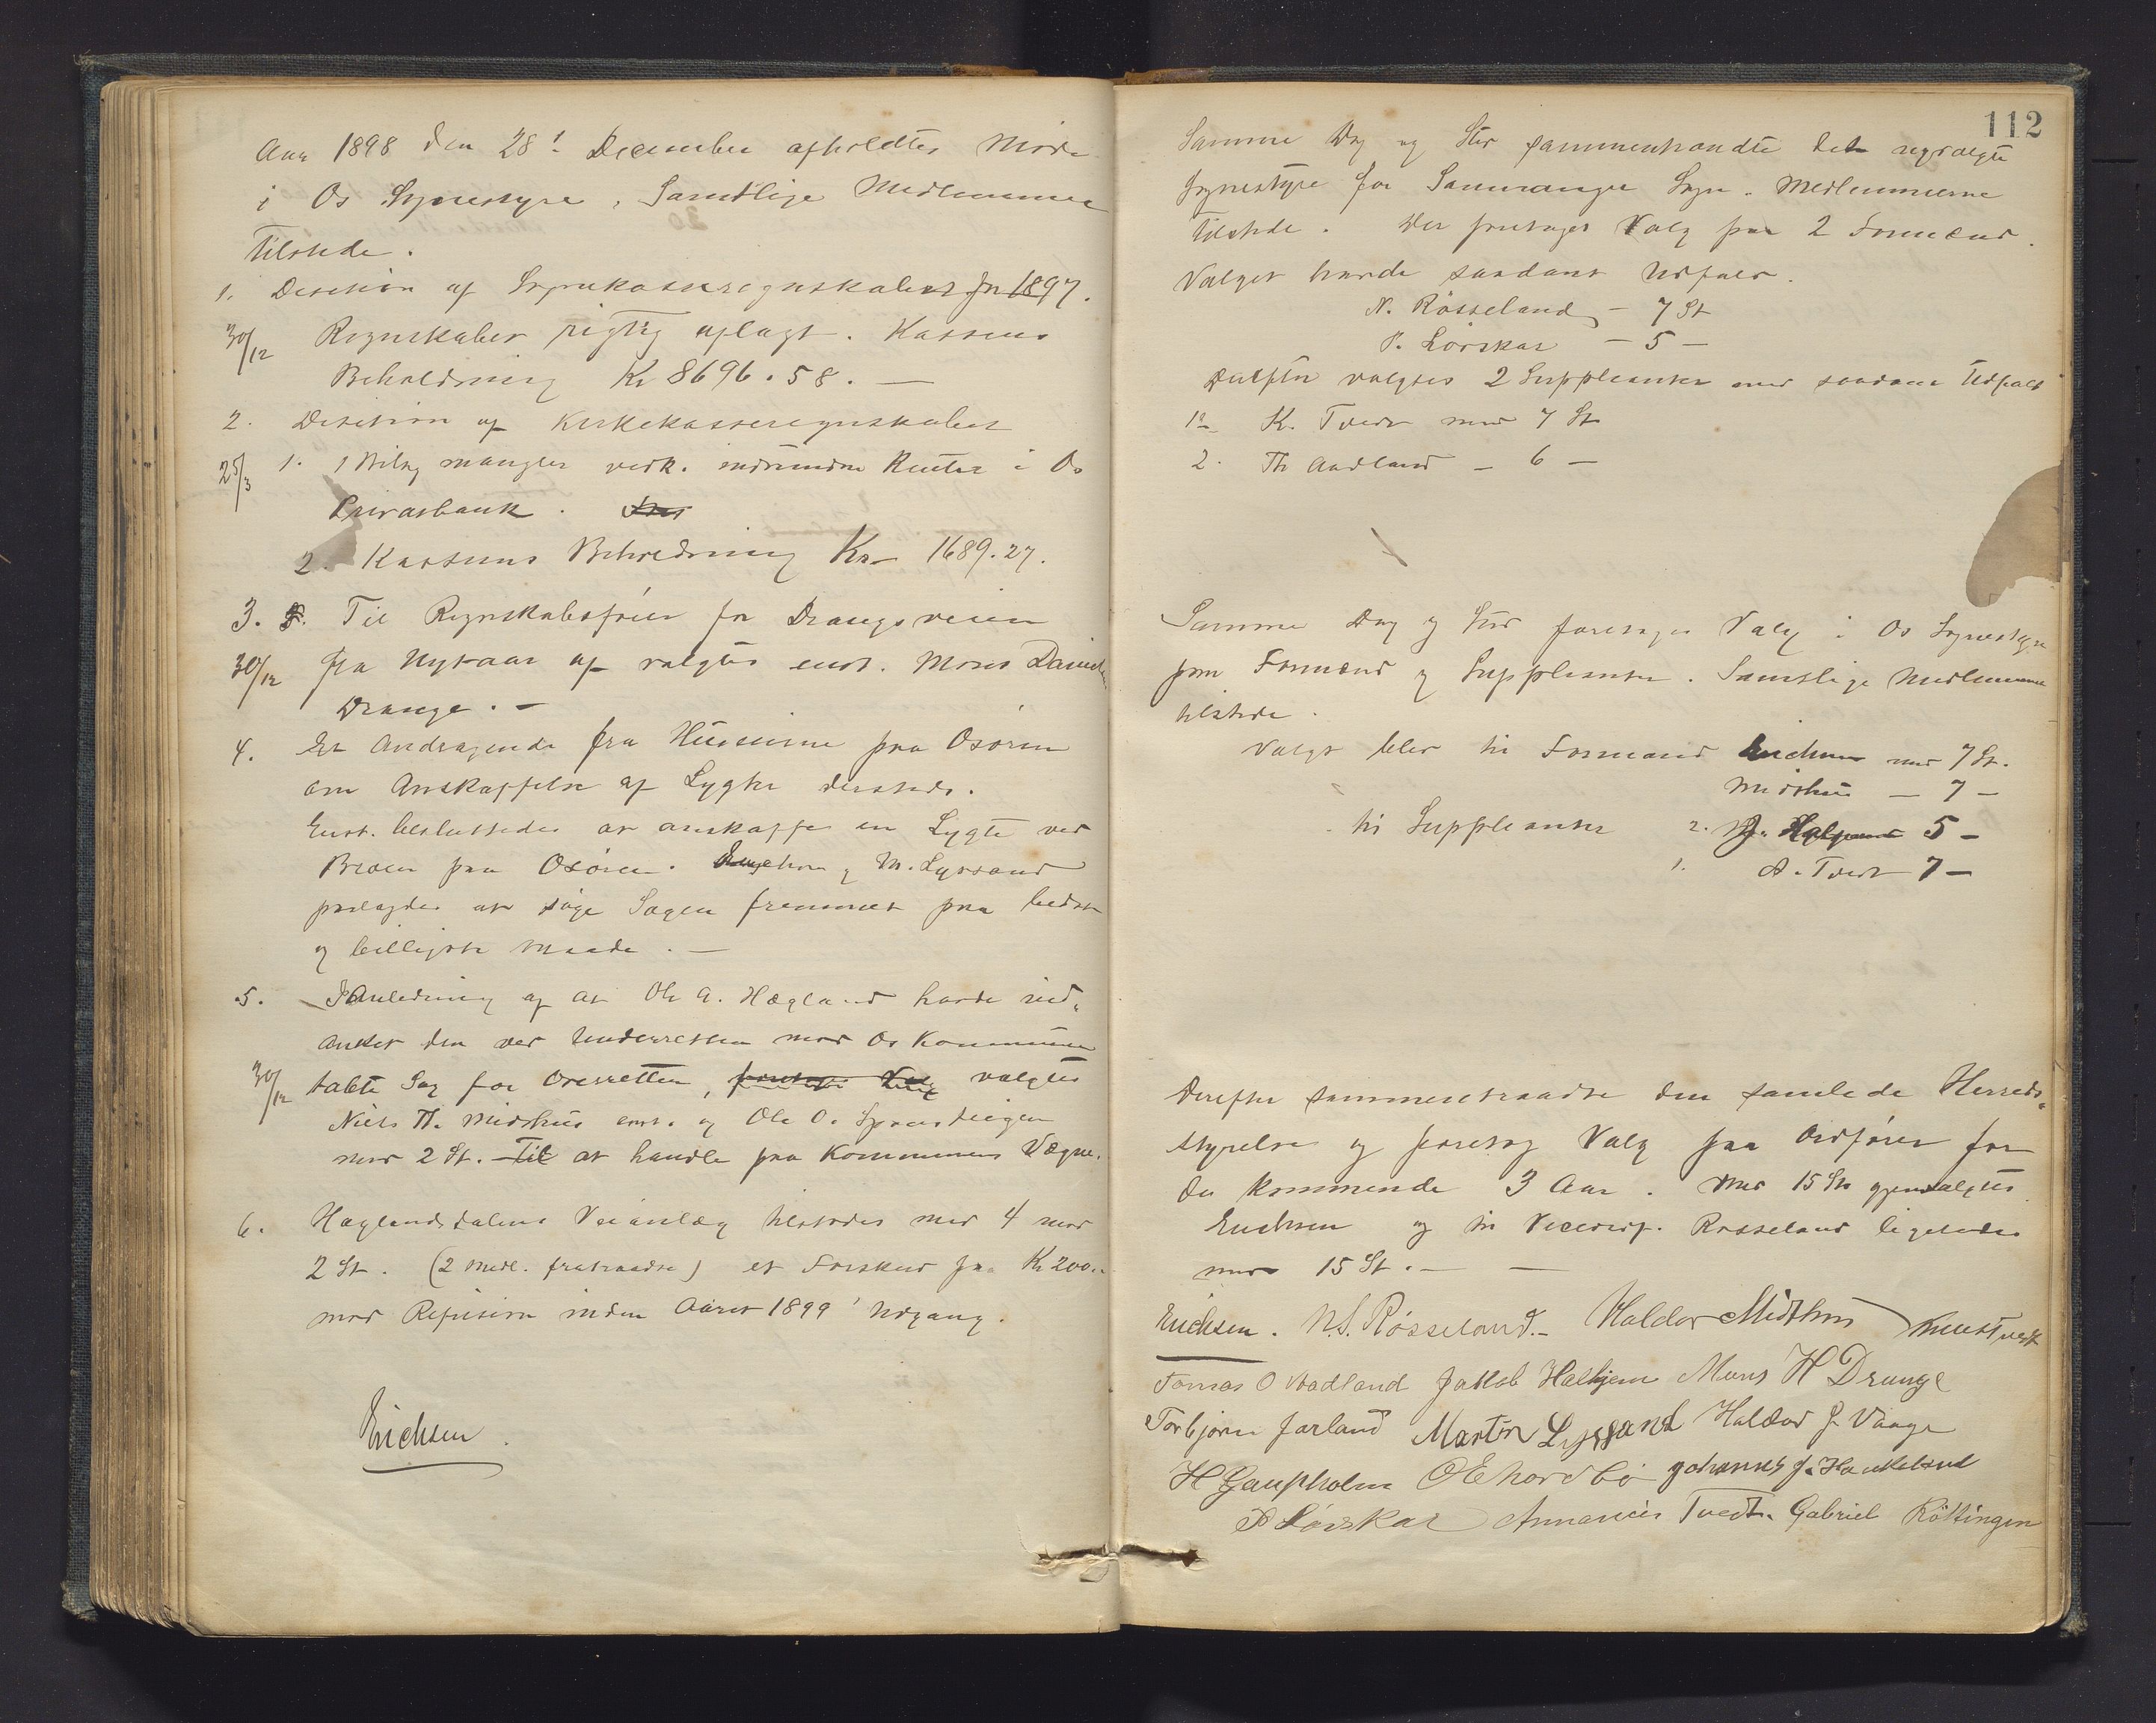 Aar 1898 den 28de December afholdtes Møde
i Os Sognestyre, Samtlige Medlemmer
tilstede.
1. Decision af Sognekasseregnskabet for 1897.
30/12 Regnskabet rigtig aflagt. Kassens
Beholdning Kr 8696.58. —
2. Decision af Kirkekasseregnskabet
25/3 1. 1 Bilag mangler vedk. Renter i Os
Privatbank.
2. Kassens Beholdning Kr 1689.27.
3. Til Regnskabsfører for Drangeveien
30/12 fra Nytaar af valgtes enst. Mons Daniels
Drange. —
4. Et Andragende fra Huseierne paa Osøren
om Anskaffelse af Lygter dersteds.
Enst. besluttedes at anskaffe en Lygte ved
Broen paa Osøren. og M. Lyssand
paalagdes at søge Sagen fremmet paa bedste
og billigste Maade. —
5. I Anledning af at Ole A. Hægland havde ind„
anket den ved Underretten mod Os Kommune
30/12 tabte Sag for Overretten, foretoges Valg valgtes
Niels Th. Midthus enst. og Ole O. Spensteigen
med 2 St. Til at handle paa Kommunens Vægne.
6. Hæglandsdalens Veianlæg tilstodes med 4 mod
2 St. (2 Medl. fratraadte) et Forskud paa Kr 200..
mod Refusion inden Aaret 1899' Udgang.
Erichsen.
112
Samme Dag og Sted sammentraadte det nyvalgte
Sognestyre for Samnanger Sogn. Medlemmerne
tilstede. Der foretoges Valg paa 2 Formænd.
Valget havde saadant Udfald.
N. Røsseland — 7 St
P. Lørskar — 5 —
Derefter valgtes 2 Suppleanter med saadant Udfald
1. K. Tvedt med 7 St
2. Th Aadland — 6 —
Samme Dag og Sted foretoges Valg i Os Sognestyre
paa Formænd og Suppleanter. Samtlige Medlemmer
tilstede.
Valgt blev til Formænd Erichsen med 7 St.
Midthus — 7 —
til Suppleanter 2. J. Halhjem 5 —
1. A. Tvedt 7 —
Derefter sammentraadte den samlede Herreds„
styrelse og foretog Valg paa Ordfører for
de kommende 3 Aar. Med 15 St gjenvalgtes
Erichsen og til Viceordf. Røsseland ligeledes
med 15 St. — —
Erichsen. N.S. Røsseland. — Haldor Midthus Knut Tvedt
Tomas O Aadland Jakob Halhjem Mons H Drange
Torbjørn Jarland Martin Lyssand Haldor J. Vaage
H Gaupholm O E hordbø Johannes J. Haukeland
P Lørskar Annanias Tvedt. Gabriel Røttingen